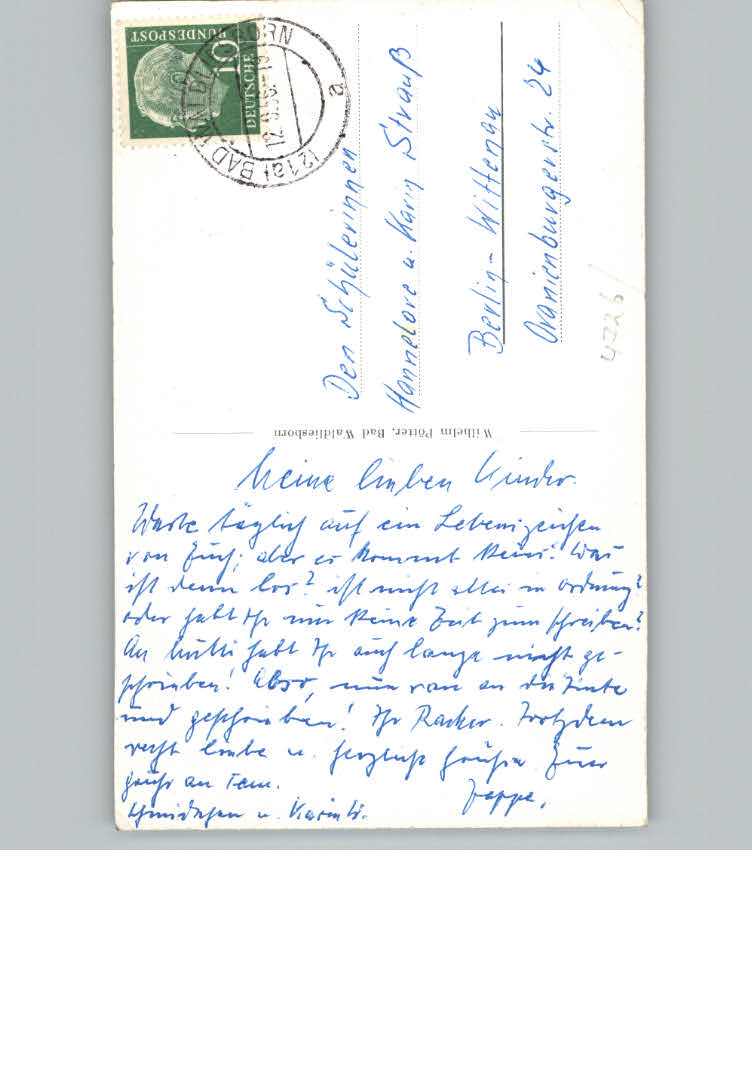 DEUTSCHE
BUNDESPOST
10
(21a) BAD WALDLIESBORN
a
Den Schülerinnen
Hannelore u. Karin Strauß
Berlin-Wittenau
Oranienburgerstr. 24
4726/
Wilhelm Pötter, Bad Waldliesborn
Meine lieben Kinder.
Warte täglich auf ein Lebenszeichen
von Euch; aber es kommt keins! Was
ist denn los? ist nicht alles in Ordnung?
oder habt Ihr nur keine Zeit zum schreiben?
An Mutti habt Ihr auch lange nicht ge-
schrieben! Also, nun ran an die Tinte
und geschrieben! Ihr Racker. Trotzdem
recht liebe u. herzliche Grüße Euer
Grüße an Tem.
u. Karin